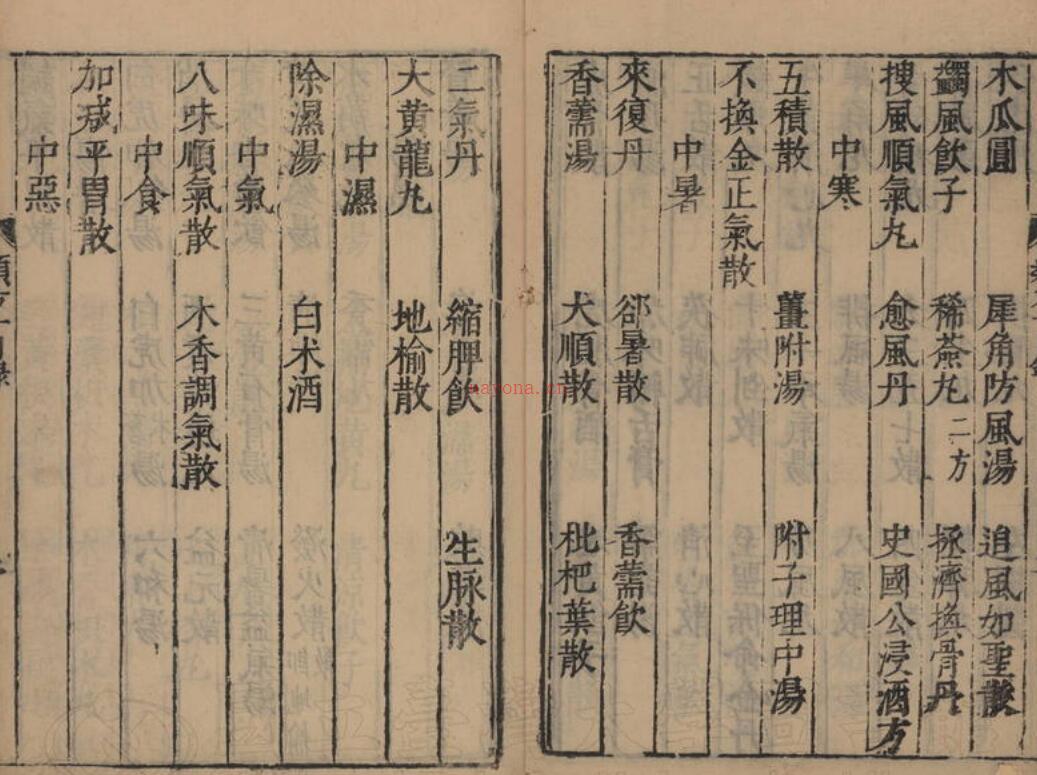 木瓜圓 犀角防風湯 追風如聖散
蠲風飲子 稀薟丸二方 拯濟換骨丹
搜風順氣丸 愈風丹 史國公浸酒方
中寒
五積散 薑附湯 附子理中湯
不換金正氣散
中暑
來復丹 郤暑散 香薷飲
香薷湯 大順散 枇杷葉散
二氣丹 縮脾飲 生脉散
大黃龍丸 地榆散
中濕
除濕湯 白术酒
中氣
八味順氣散 木香調氣散
中食
加减平胃散
中惡
nayona.cn